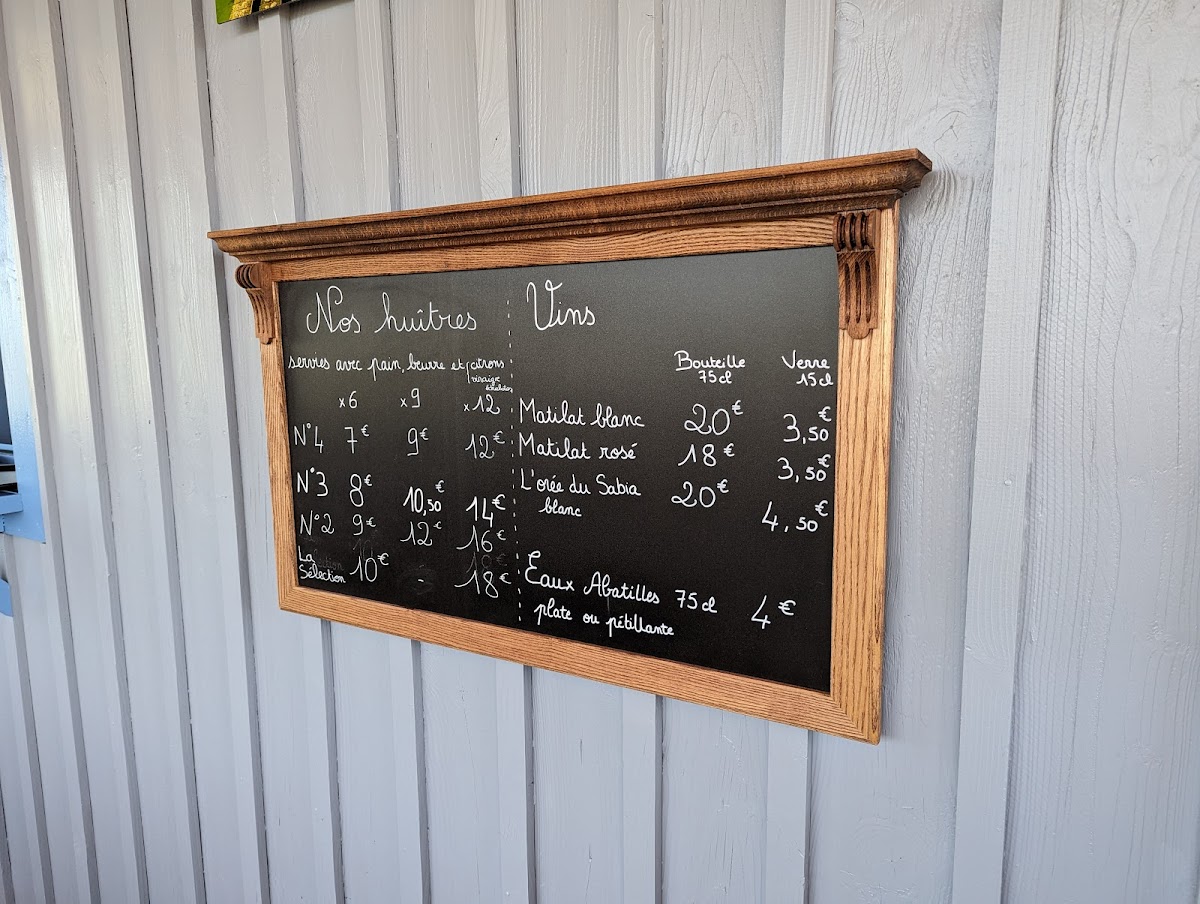 Nos huîtres
servies avec pain, beurre et citrons
vinaigre
x6 x9 x12
N°4 7€ 9€ 12€
N°3 8€ 10,50€ 14€
N°2 9€ 12€ 16€
La
Sélection 10€ - 18€
Vins
Bouteille Verre
75cl 15cl
Matilat blanc 20€ 3,50€
Matilat rosé 18€ 3,50€
L'orée du Sabia 20€ 4,50€
blanc
Eaux Abatilles 75cl 4€
plate ou pétillante